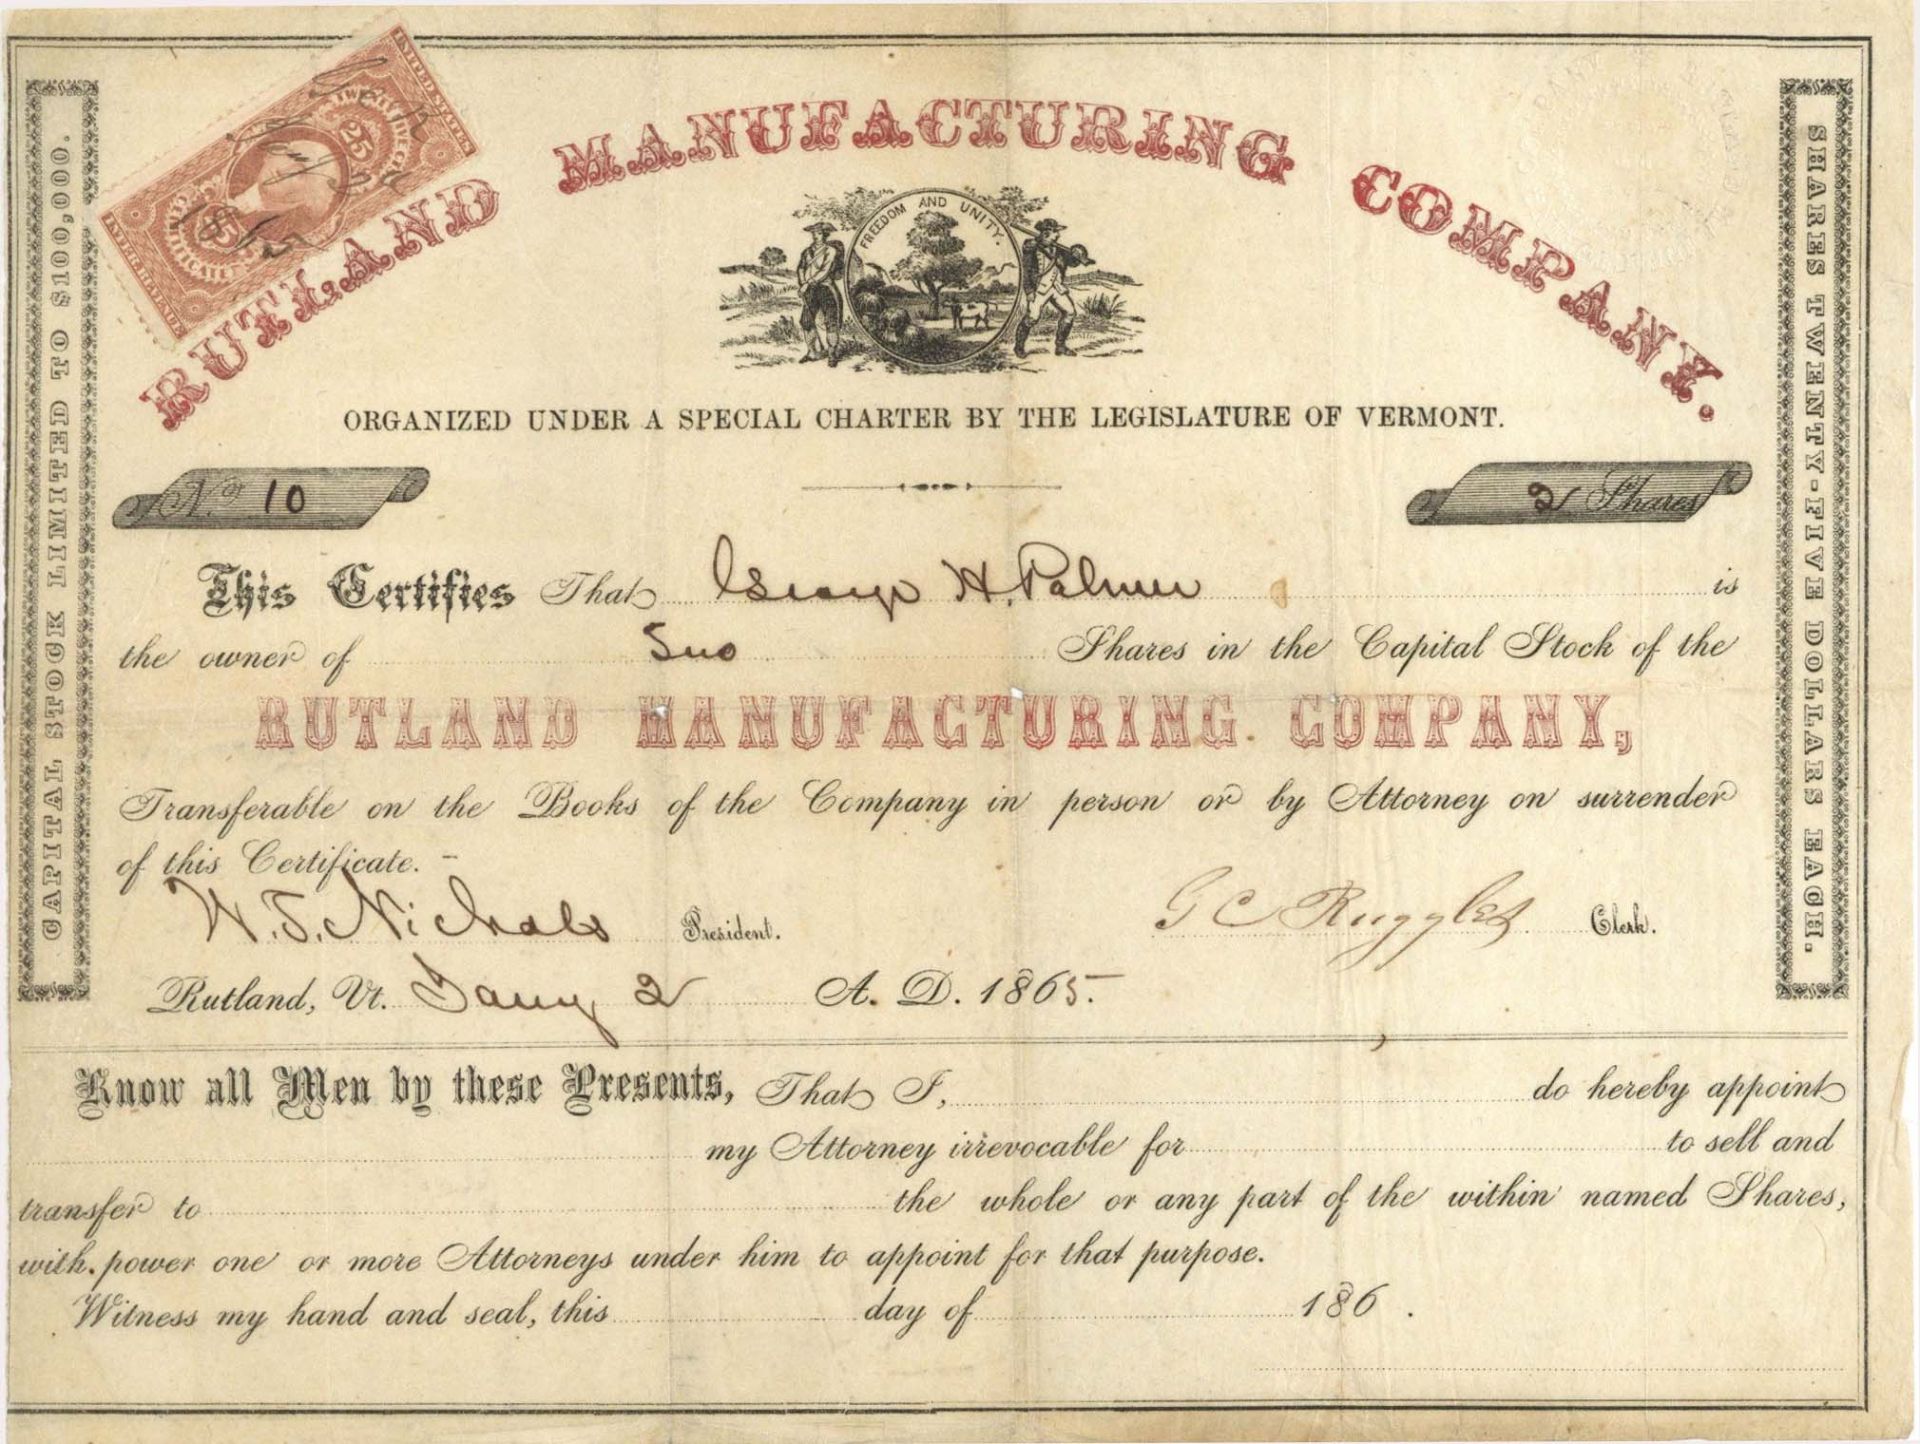 RUTLAND MANUFACTURING COMPANY.
UNITED STATES
TWENTY FIVE CTS
25
25
CERTIFICATE
INTER. REVENUE
Jan'y 2
1865
FREEDOM AND UNITY.
CAPITAL STOCK LIMITED TO $100,000.
SHARES TWENTY-FIVE DOLLARS EACH.
ORGANIZED UNDER A SPECIAL CHARTER BY THE LEGISLATURE OF VERMONT.
No. 10
2 Shares
This Certifies That George H. Palmer is
the owner of Two Shares in the Capital Stock of the
RUTLAND MANUFACTURING COMPANY,
Transferable on the Books of the Company in person or by Attorney on surrender
of this Certificate.-
W. T. Nichols President. G C Ruggles Clerk.
Rutland, Vt. Jany 2 A. D. 1865.
Know all Men by these Presents, That I, do hereby appoint
my Attorney irrevocable for to sell and
transfer to the whole or any part of the within named Shares,
with power one or more Attorneys under him to appoint for that purpose.
Witness my hand and seal, this day of 186 .